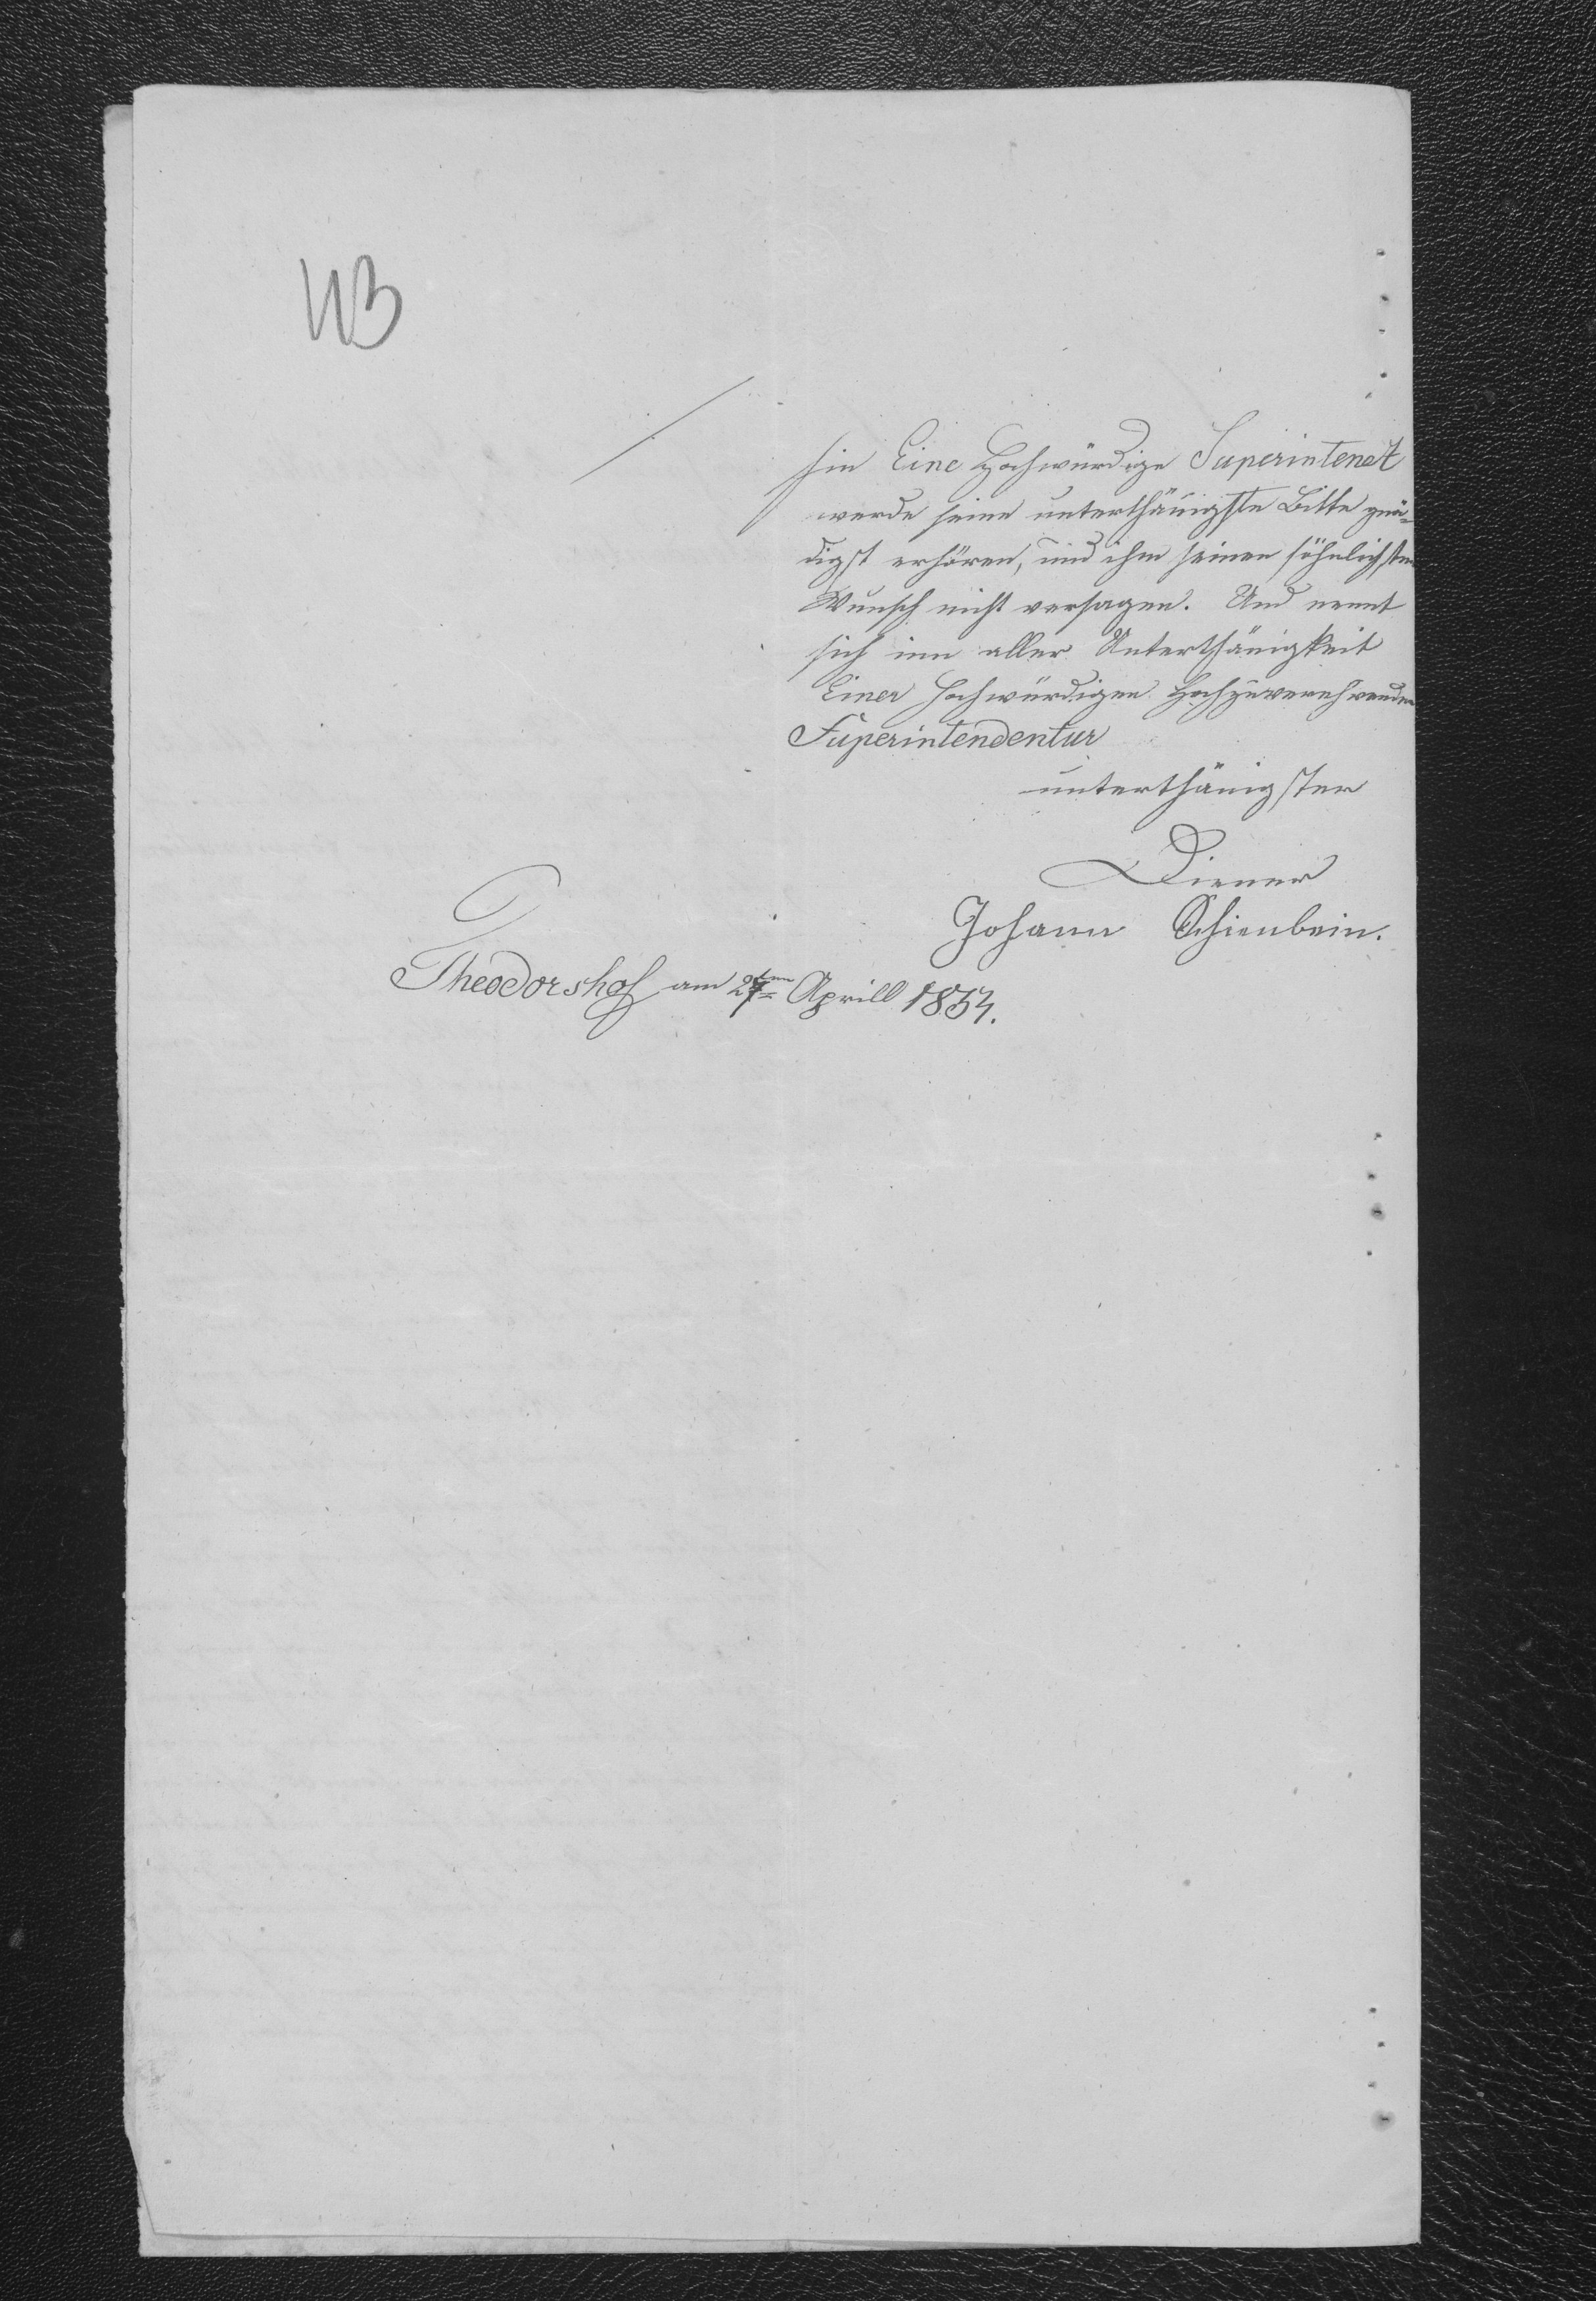 43
hin Eine Hochwürdige Superintenet
werde seine unterthänigste Bitte gnä-
digst erhören, und ihm seinen söhnlichsten
Wunsch nicht versagen. Und nennt
sich inn aller Unterthänigkeit
Einer Hochwürdigen Hochzuverehrenden
Superintendentur
unterthänigster
Diener
Johann Schienbein.
Theodorshof am 27ten Aprill 1854.